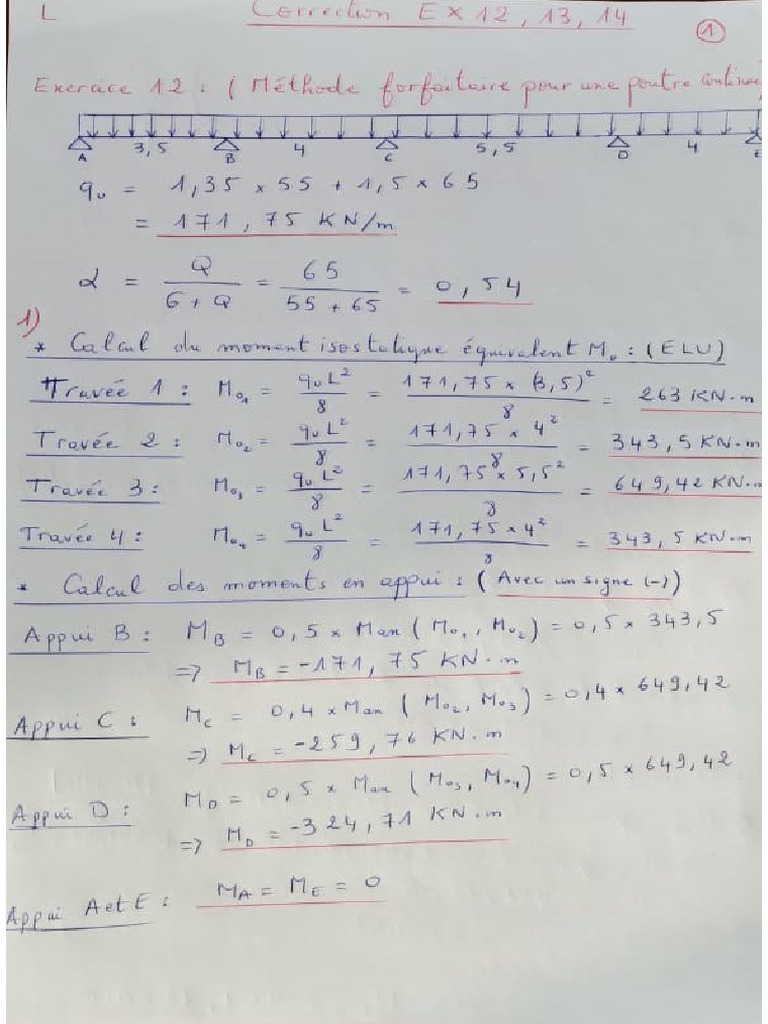 L
Correction Ex 12, 13, 14
1
Exercice 12 : ( Méthode forfaitaire pour une poutre continue)
A 3,5 B 4 C 5,5 D 4 E
qu = 1,35 × 55 + 1,5 × 65
= 171,75 KN/m
α = Q / (G + Q) = 65 / (55 + 65) = 0,54
1)
* Calcul du moment isostatique équivalent M₀ : (ELU)
Travée 1 : M₀₁ = qu L² / 8 = 171,75 × (3,5)² / 8 = 263 KN.m
Travée 2 : M₀₂ = qu L² / 8 = 171,75 × 4² / 8 = 343,5 KN.m
Travée 3 : M₀₃ = qu L² / 8 = 171,75 × 5,5² / 8 = 649,42 KN.m
Travée 4 : M₀₄ = qu L² / 8 = 171,75 × 4² / 8 = 343,5 KN.m
* Calcul des moments en appui : ( Avec un signe (-))
Appui B : MB = 0,5 × Max ( M₀₁ , M₀₂ ) = 0,5 × 343,5
=> MB = -171,75 KN.m
Appui C : Mc = 0,4 × Max ( M₀₂, M₀₃ ) = 0,4 × 649,42
=> Mc = -259,76 KN.m
Appui D : MD = 0,5 × Max ( M₀₃, M₀₄ ) = 0,5 × 649,42
=> MD = -324,71 KN.m
Appui A et E : MA = ME = 0